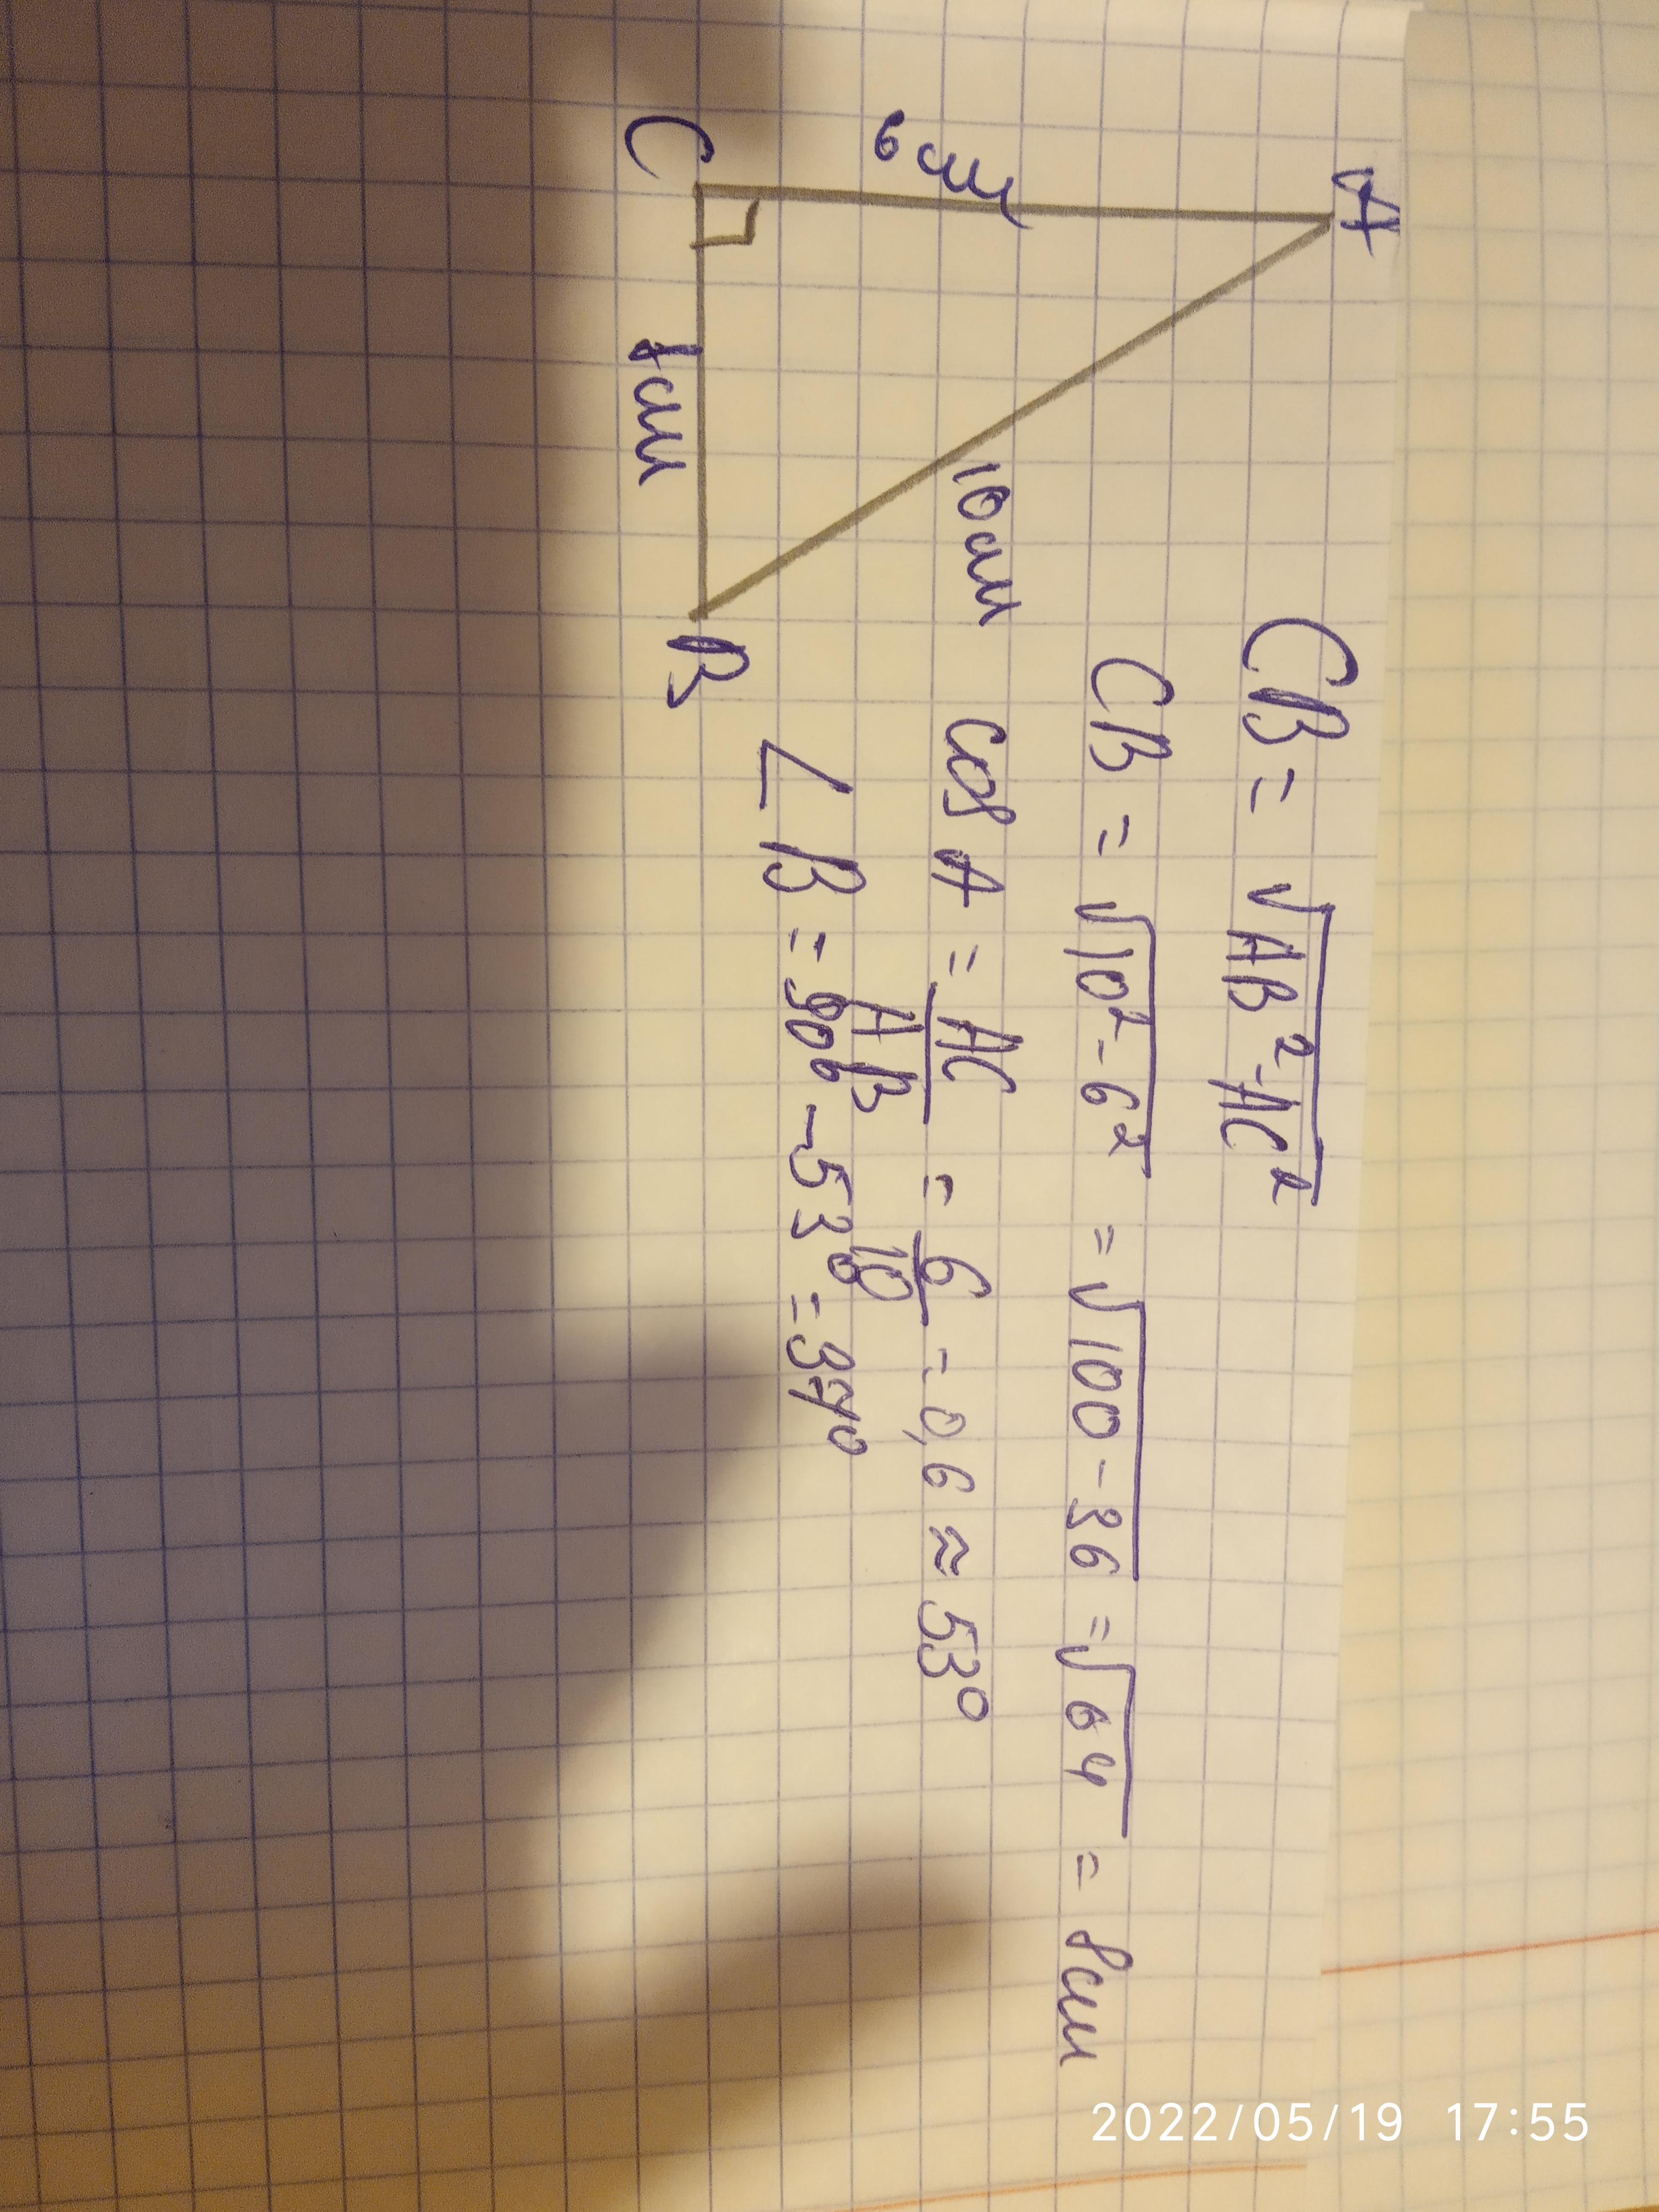 A
6 см
10 см
C
8 см
B
CB = √AB²-AC²
CB = √10²-6² = √100-36 = √64 = 8 см
cos A = AC/AB = 6/10 = 0,6 ≈ 53°
∠B = 90° - 53° = 37°
2022/05/19 17:55